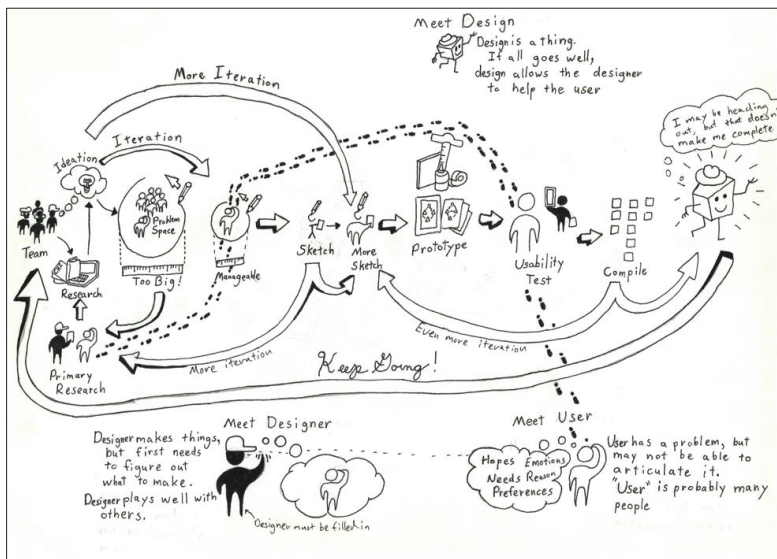 Meet Design
Design is a thing.
If all goes well,
design allows the designer
to help the user
More Iteration
Iteration
Ideation
I may be heading
out, but that doesn
make me complete
Problem
Space
Team
Research
Too Big!
Manageable
Sketch
More
Sketch
Prototype
Usability
Test
Compile
Primary
Research
More iteration
Even more iteration
Keep Going!
Meet Designer
Designer makes things,
but first needs
to figure out
what to make.
Designer plays well with
others.
Designer must be filled in
Meet User
Hopes Emotions
Needs Reason
Preferences
User has a problem, but
may not be able to
articulate it.
"User" is probably many
people